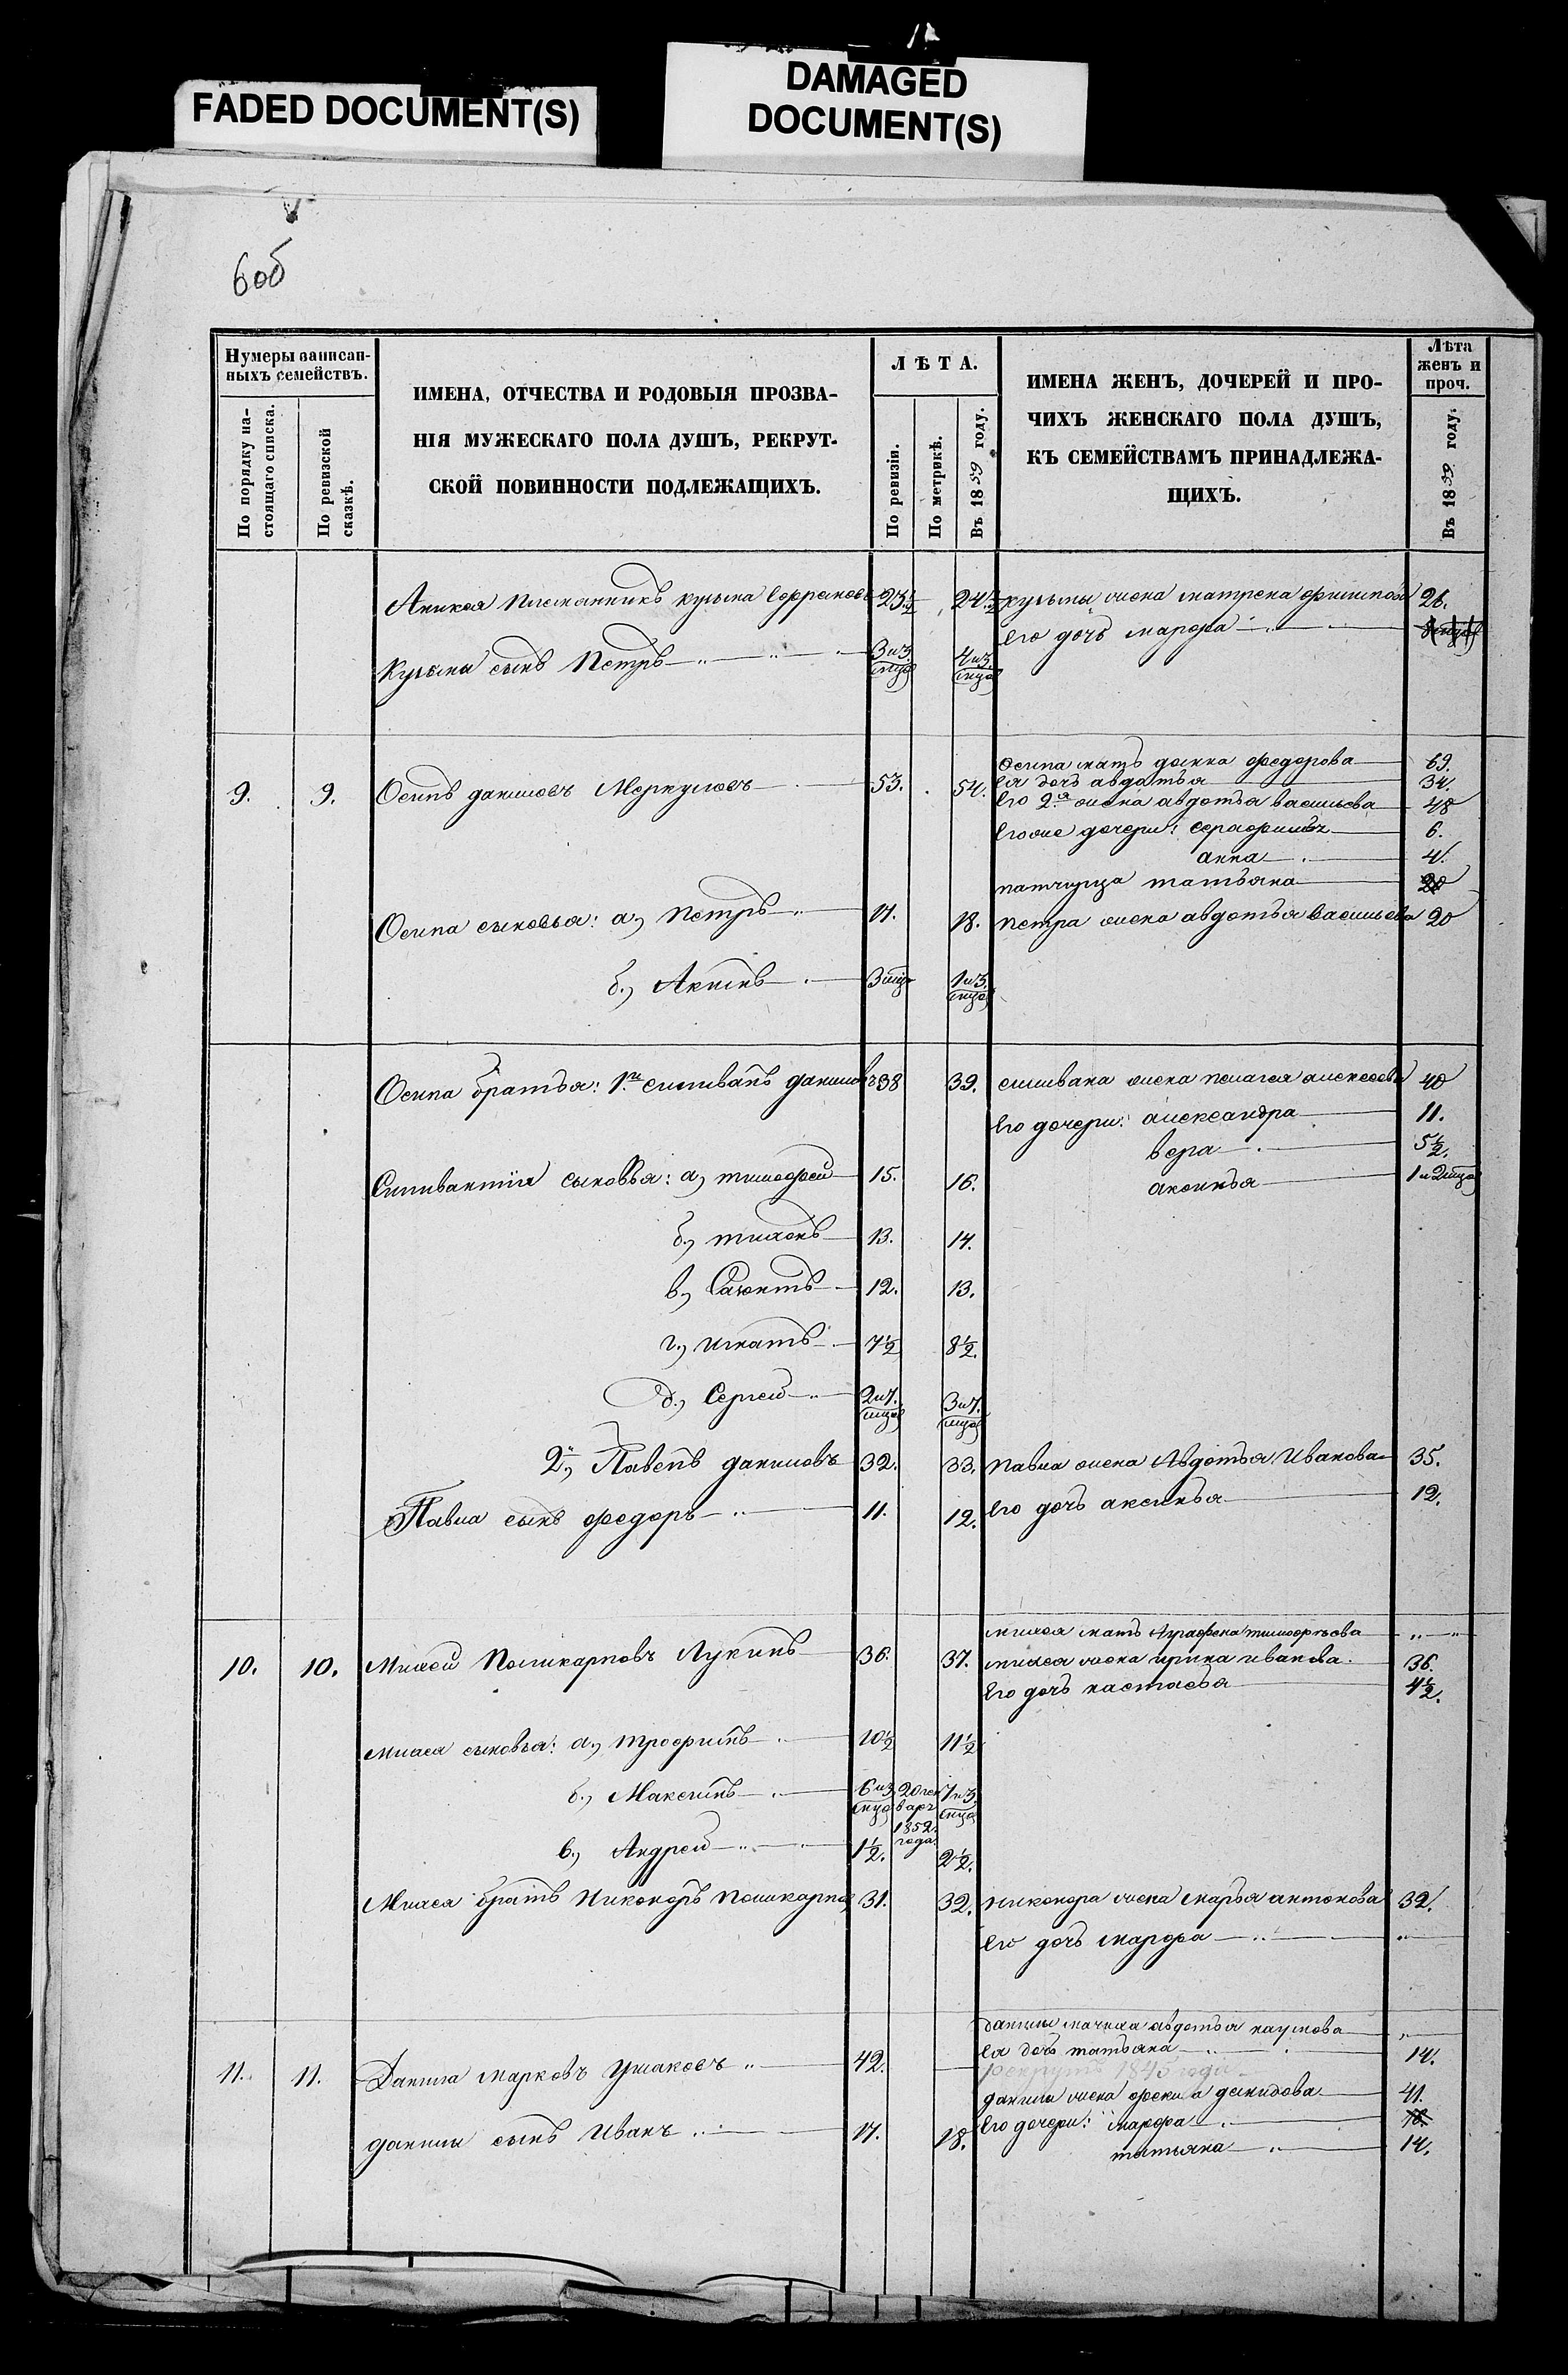 FADED DOCUMENT(S)
DAMAGED
DOCUMENT(S)
6об
Нумеры записан-
ныхъ семействъ.
По порядку на-
стоящаго списка.
По ревизской
сказкѣ.
ИМЕНА, ОТЧЕСТВА И РОДОВЫЯ ПРОЗВА-
НІЯ МУЖЕСКАГО ПОЛА ДУШЪ, РЕКРУТ-
СКОЙ ПОВИННОСТИ ПОДЛЕЖАЩИХЪ.
ЛѢТА.
По ревизіи.
По метрикѣ.
Въ 1859 году.
ИМЕНА ЖЕНЪ, ДОЧЕРЕЙ И ПРО-
ЧИХЪ ЖЕНСКАГО ПОЛА ДУШЪ,
КЪ СЕМЕЙСТВАМЪ ПРИНАДЛЕЖА-
ЩИХЪ.
Лѣта
женъ и
проч.
Въ 1859 году.
Аникея племянникъ кузьма 23½ 24½ кузьмы жена матрена 26.
Его дочь марфа
Кузьмы сынъ Петръ 3 и 3 мца 4 и 3 мца
Осипа мать домна федорова 69.
9. 9. Осипъ даниловъ Меркуловъ 53. 54. Ея дочь авдотья 34.
Его 2я жена авдотья васильева 48
Его же дочери: серафима 6.
анна 4.
патчирица татьяна 20
Осипа сыновья: а, Петръ 17. 18. Петра жена авдотья васильева 20
б., Акимъ 3 мца 1 и 3 мца
Осипа братья: 1й силиванъ даниловъ 38 39. силивана жена пелагея алексеева 40
Его дочери: александра 11.
вера 5½.
Силивантия сыновья: а, тимофей 15. 16. аксинья 1 и 2 мца
б., тихонъ 13. 14.
в., 12. 13.
г., игнатъ 7½ 8½.
д., Сергей 2 и 7 мца 3 и 7 мца
2й, Павелъ даниловъ 32. 33. Павла жена Авдотья Иванова 35.
Павла сынъ федоръ 11. 12. Его дочь аксинья 12.
михея мать Аграфена тимофеева
10. 10. Михей Поликарповъ Лукинъ 36. 37. михея жена ирина иванова. 36.
Его дочь настасья 4½.
михея сыновья: а., трофимъ 10½ 11½
б., Максимъ 6 и 3 мца 20 генваря 1852. года. 7 и 3 мца
в., Андрей 1½. 2½.
Михея братъ Никоноръ Поликарпов 31. 32. никонора жена марья антонова 32.
Его дочь марфа
данилы мачиха авдотья наумова
Ея дочь татьяна 14.
11. 11. Данила марковъ Ушаковъ 42. рекрутъ 1845 года
данилы жена фекла демидова 41.
данилы сынъ Иванъ 17. 18. Его дочери: марфа 18.
татьяна 14.